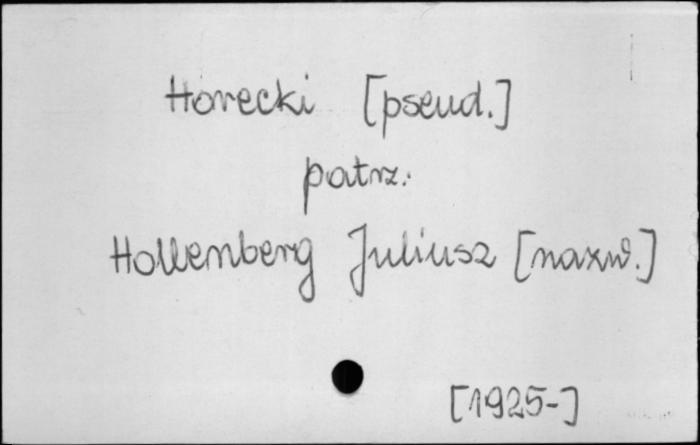 Horecki [pseud.]
patrz:
Hollenberg Juliusz [nazw.]
[1925-]